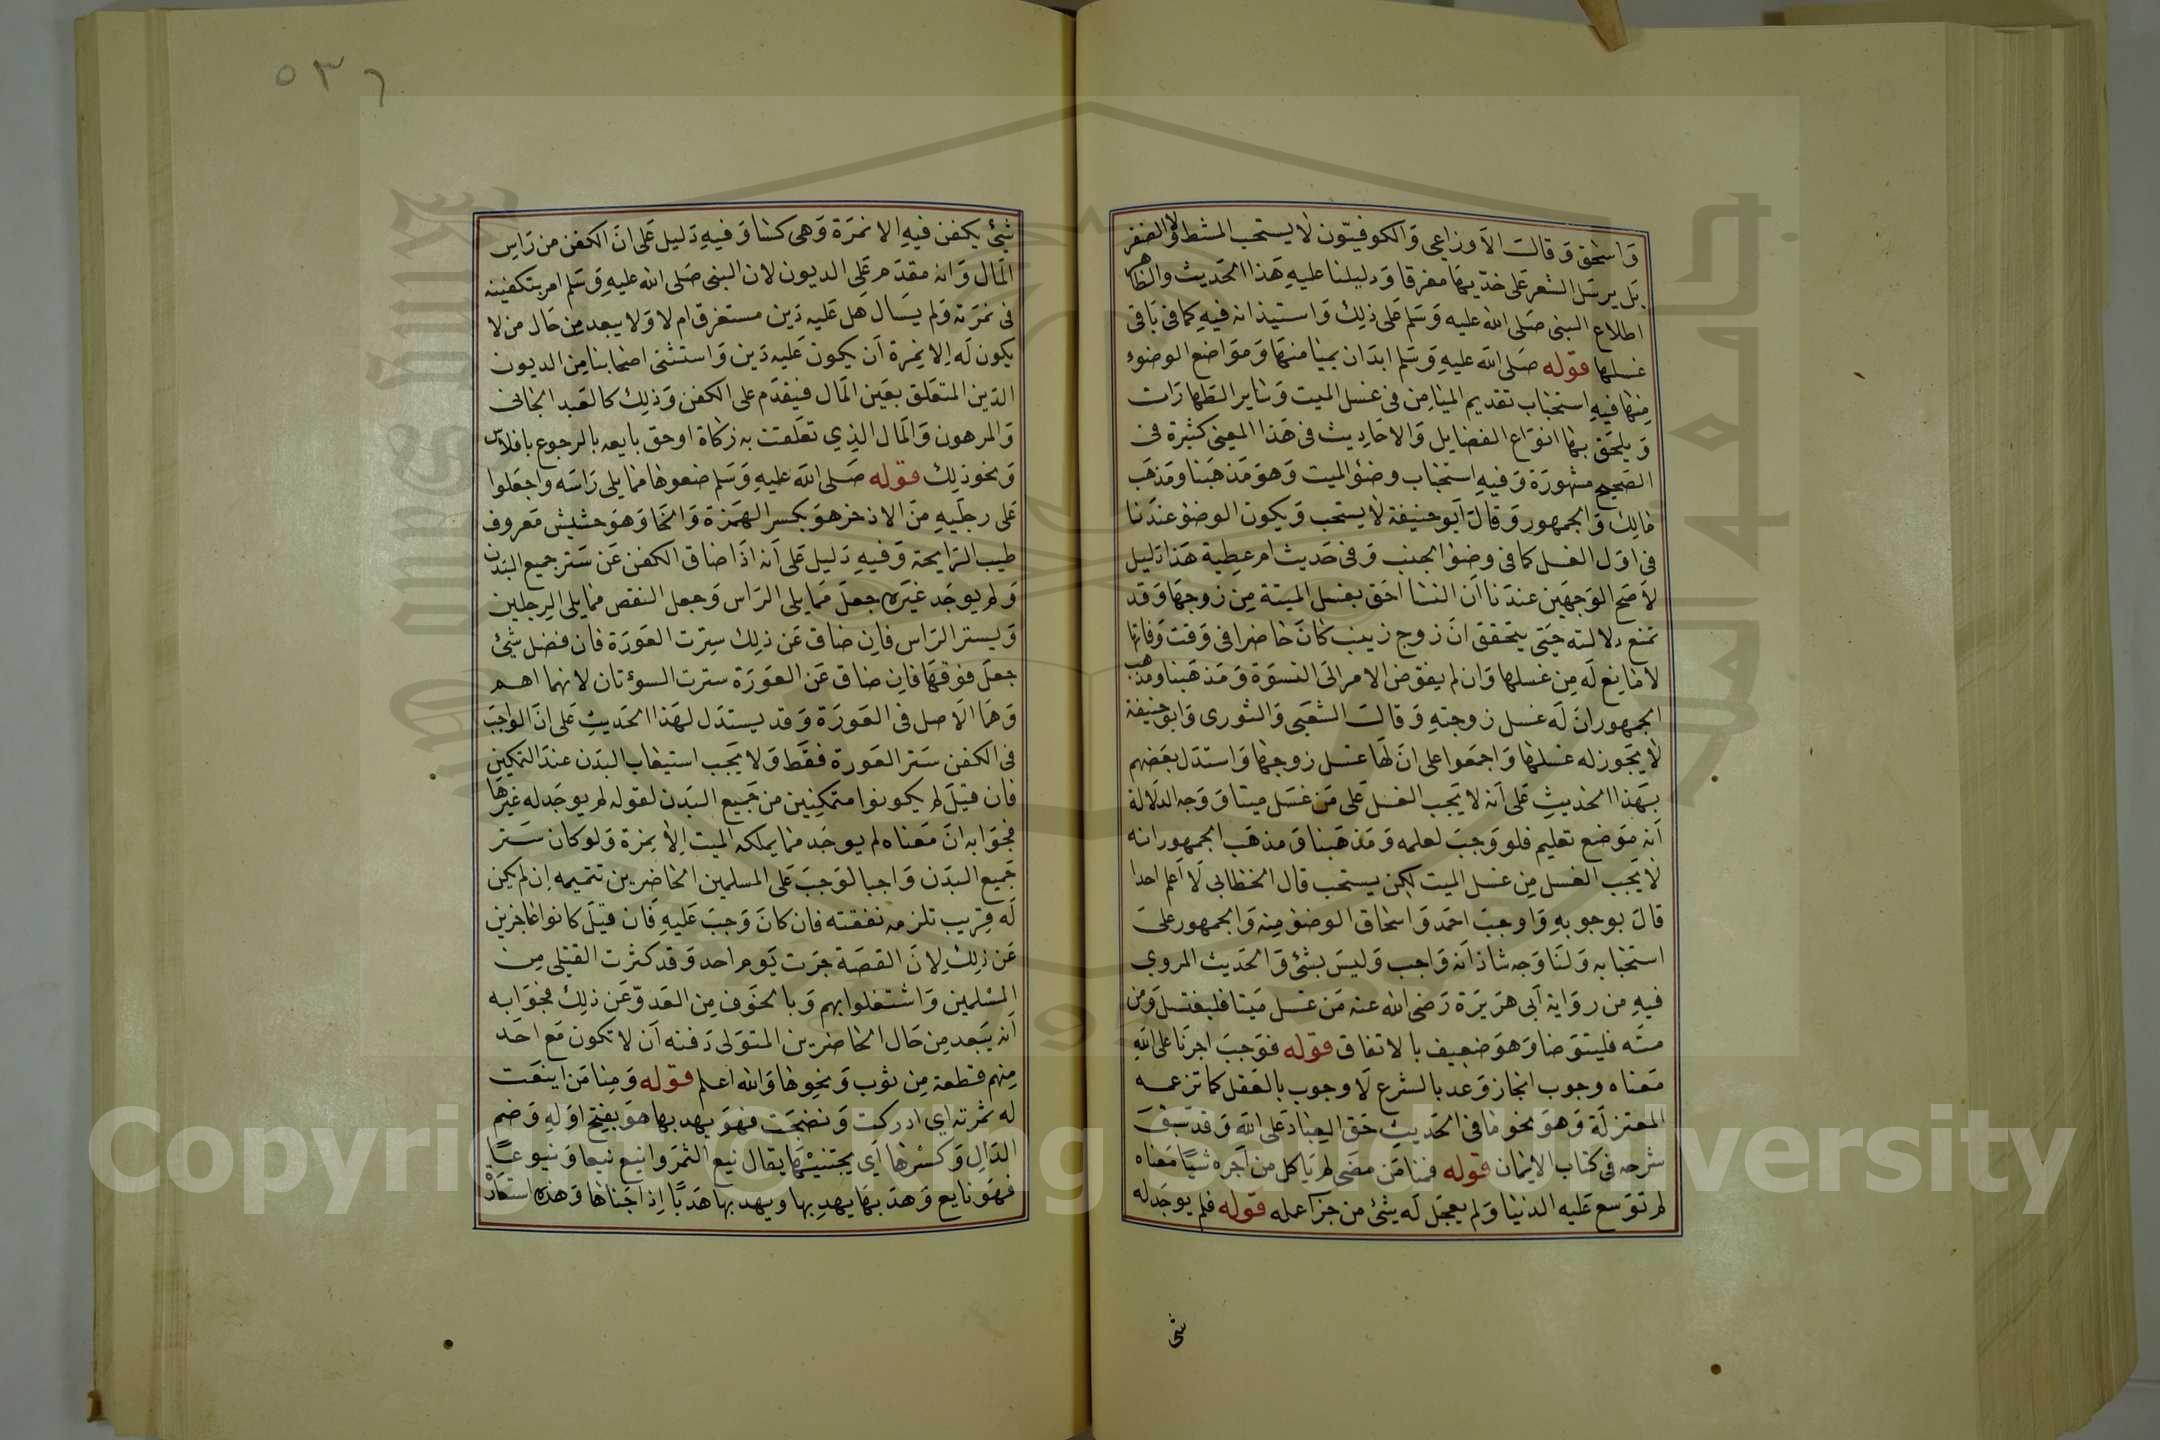 ٥٣٦
واسحق وقالت الاوزاعي والكوفيون لا يستحب المشط ولا الضفر
بل يرسل الشعر على خديها مفرقا ودليلنا عليه هذا الحديث والظاهر
اطلاع النبي صلى الله عليه وسلم على ذلك واستيذانه فيه كما في باقي
غسلها قوله صلى الله عليه وسلم ابدان بميامنها ومواضع الوضوء
منها فيه استحباب تقديم الميامن في غسل الميت وساير الطهارات
ويلحق بها انواع الفضايل والاحاديث في هذا المعنى كثيرة في
الصحيح مشهورة وفيه استحباب وضوء الميت وهو مذهبنا ومذهب
مالك والجمهور وقال ابو حنيفة لا يستحب ويكون الوضوء عندنا
في اول الغسل كما في وضوء الجنب وفي حديث ام عطية هذا دليل
لاصح الوجهين عندنا ان النسا احق بغسل الميتة من زوجها وقد
تمنع دلالته حتى يتحقق ان زوج زينب كان حاضرا في وقت وفاتها
لا مانع له من غسلها وان لم يفوض الامر الى النسوة ومذهبنا ومذهب
الجمهور ان له غسل زوجته وقالت الشعبي والثوري وابو حنيفة
لا يجوز له غسلها واجمعوا على ان لها غسل زوجها واستدل بعضهم
بهذا الحديث على انه لا يجب الغسل على من غسل ميتا ووجه الدلالة
انه موضع تعليم فلو وجب لعلمه ومذهبنا ومذهب الجمهور انه
لا يجب الغسل من غسل الميت لكن يستحب قال الخطابي لا اعلم احدا
قال بوجوبه واوجب احمد واسحاق الوضوء منه والجمهور على
استحبابه ولنا وجه شاذ انه واجب وليس بشئ والحديث المروي
فيه من رواية ابي هريرة رضي الله عنه من غسل ميتا فليغتسل ومن
مسه فليتوضا وهو ضعيف بالاتفاق قوله فوجب اجرنا على الله
معناه وجوب انجاز وعد بالشرع لا وجوب بالعقل كما تزعمه
المعتزلة وهو نحو ما في الحديث حق العباد على الله وقد سبق
شرحه في كتاب الايمان قوله فمنا من مضى لم ياكل من اجره شيًا معناه
لم توسع عليه الدنيا ولم يعجل له شئ من جزا عمله قوله فلم يوجد له
شئ
شئ يكفن فيه الا نمرة وهي كسا وفيه دليل على ان الكفن من راس
المال وانه مقدم على الديون لان النبي صلى الله عليه وسلم امر بتكفينه
في نمرته ولم يسال هل عليه دين مستغرق ام لا ولا يبعد من حال من لا
يكون له الا نمرة ان يكون عليه دين واستثنى اصحابنا من الديون
الدين المتعلق بعين المال فيقدم على الكفن وذلك كالعبد الجاني
والمرهون والمال الذي تعلقت به زكاة او حق بايعه بالرجوع بافلاس
ونحو ذلك قوله صلى الله عليه وسلم ضعوها مما يلي راسه واجعلوا
على رجليه من الاذخر هو بكسر الهمزة والخا وهو حشيش معروف
طيب الرايحة وفيه دليل على انه اذا ضاق الكفن عن ستر جميع البدن
ولم يوجد غيره جعل مما يلي الراس وجعل النقص مما يلي الرجلين
ويستر الراس فان ضاق عن ذلك سترت العورة فان فضل شئ
جعل فوقها فان ضاق عن العورة سترت السوءتان لانهما اهم
وهما الاصل في العورة وقد يستدل لهذا الحديث على ان الواجب
في الكفن ستر العورة فقط ولا يجب استيعاب البدن عند التمكين
فان قيل لم يكونوا متمكنين من جميع البدن لقوله لم يوجد له غيرها
فجوابه ان معناه لم يوجد مما يملكه الميت الا نمرة ولو كان ستر
جميع البدن واجبا لوجب على المسلمين الحاضرين تتميمه ان لم يكن
له قريب تلزمه نفقته فان كان وجب عليه فان قيل كانوا عاجزين
عن ذلك لان القصة جرت يوم احد وقد كثرت القتلى من
المسلمين واشتغلوا بهم وبالخوف من العدو عن ذلك فجوابه
انه يبعد من حال الحاضرين المتولى دفنه ان لا تكون مع احد
منهم قطعة من ثوب ونحوها والله اعلم قوله ومنا من اينعت
له ثمرته اي ادركت ونضجت فهو يهدبها هو بفتح اوله وضم
الدال وكسرها اي يجتنيها يقال ينع الثمر واينع ينعا وينوعًا
فهو يانع وهدبها يهدبها ويهدبها هدبًا اذا جناها وهذه استعارة
Copyright © King Saud University
جامعة الملك سعود
King Saud University
1957